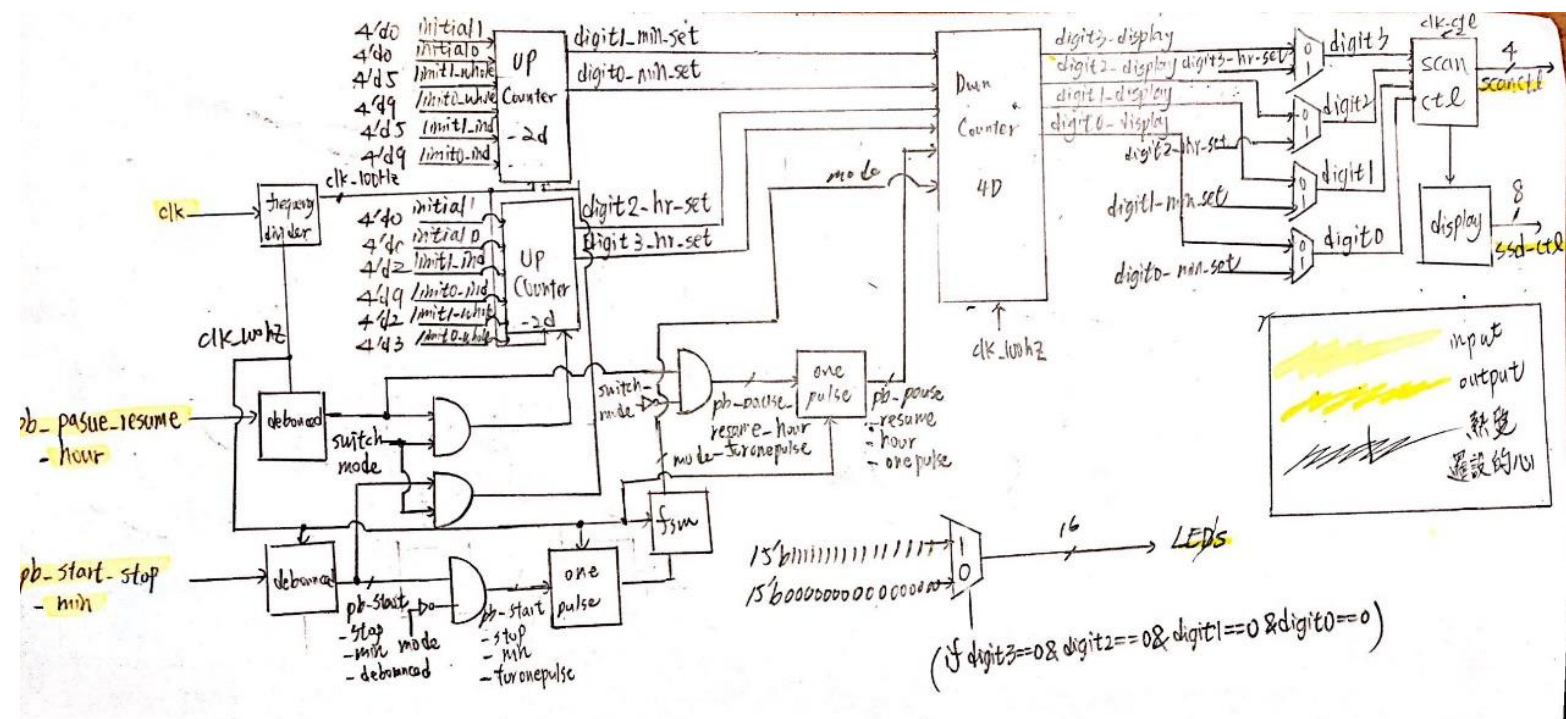 4'd0 initial1
4'd0 initial0
4'd5 limit1_whole
4'd9 limit0_whole
4'd5 limit1_ind
4'd9 limit0_ind
UP
Counter
-2d
digit1_min_set
digit0_min_set
clk
frequency
divider
clk_100Hz
4'd0 initial1
initial0
4'd2 limit1_ind
4'd9 limit0_ind
4'd2 limit1_whole
4'd3 limit0_whole
UP
Counter
-2d
digit2_hr_set
digit3_hr_set
mode
Down
Counter
4D
clk_100hz
digit3_display
digit2_display
digit1_display
digit0_display
digit3_hr_set
digit2_hr_set
digit1_min_set
digit0_min_set
0
1
0
1
0
1
0
1
digit3
digit2
digit1
digit0
clk_ctl
scan
ctl
4
scanctl
display
8
ssd_ctl
clk_100hz
pb_pasue_resume
- hour
debounced
switch
mode
switch_
mode
pb_pause_
resume_hour
_foronepulse
one
pulse
pb_pause
- resume
- hour
- onepulse
mode
fsm
pb_start_stop
- min
debounced
pb_start
-stop
-min
-debounced
mode
pb_start
-stop
-min
-foronepulse
one
pulse
15'b111111111111111
15'b000000000000000
1
0
16
LED's
(if digit3==0& digit2==0& digit1==0 &digit0==0)
input
output
熬夜
選設的心